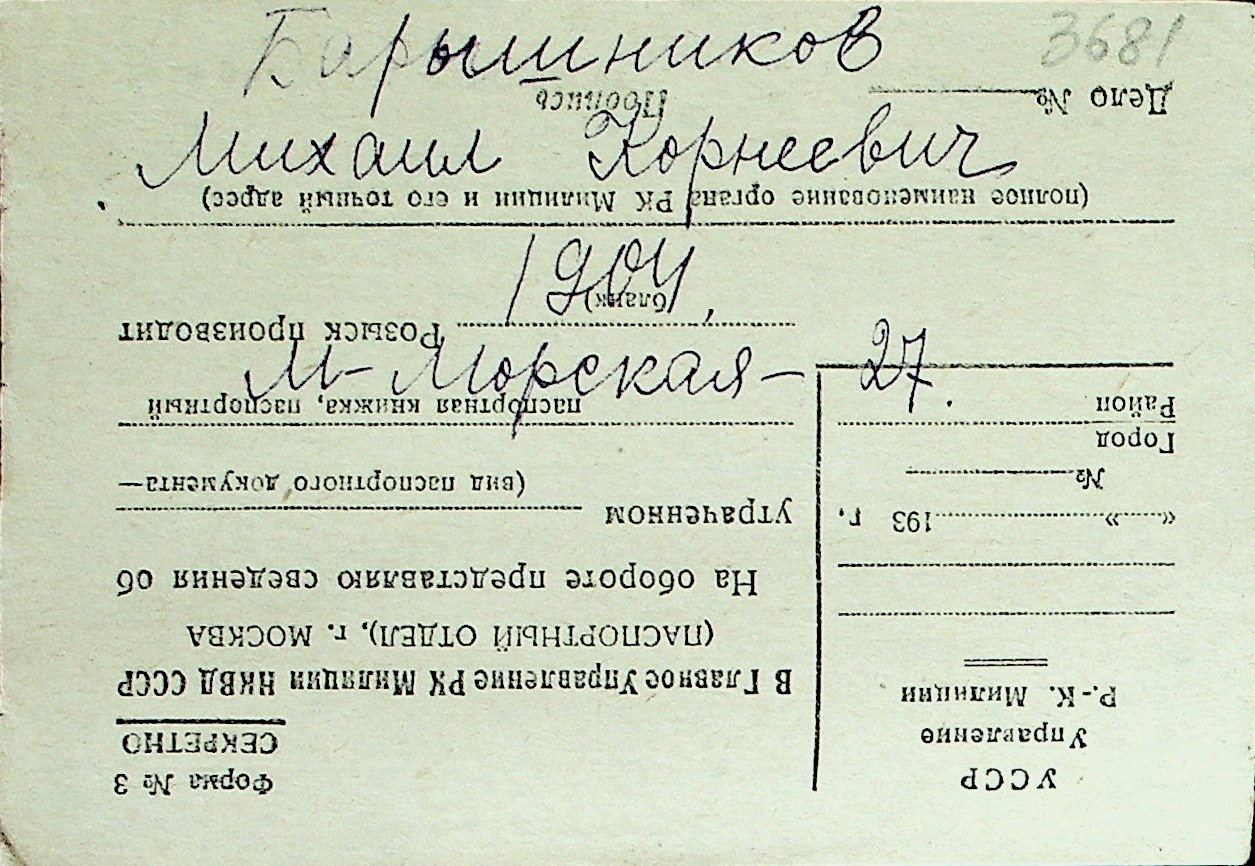 Барышников
3681
Михаил Корнеевич
1904,
М-Морская-27.
Форма № 3
СЕКРЕТНО
УССР
Управление
Р.-К. Милиции
« » 193 г.
№
Город
Район
В Главное Управление РК Милиции НКВД СССР
(ПАСПОРТНЫЙ ОТДЕЛ), г. МОСКВА
На обороте представляю сведения об
утраченном
(вид паспортного документа—
паспортная книжка, паспортный
бланк)
Розыск производит
(полное наименование органа РК Милиции и его точный адрес)
Дело №
Подпись